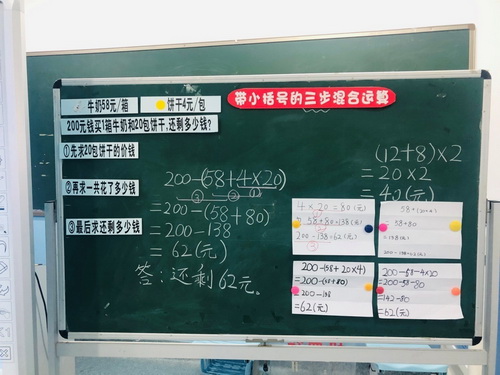 牛奶58元/箱
饼干4元/包
带小括号的三步混合运算
200元钱买1箱牛奶和20包饼干,还剩多少钱?
①先求20包饼干的价钱
②再求一共花了多少钱
③最后求还剩多少钱
200-(58+4×20)
③ ② ①
=200-(58+80)
=200-138
=62(元)
答:还剩62元。
(12+8)×2
=20×2
=40(元)
4×20=80(元)
58+80=138(元)
200-138=62(元)
=58+80
200-(58+20×4)
=200-(58+80)
=200-138
=62(元)
200-58-4×20
=200-58-80
=142-80
=62(元)